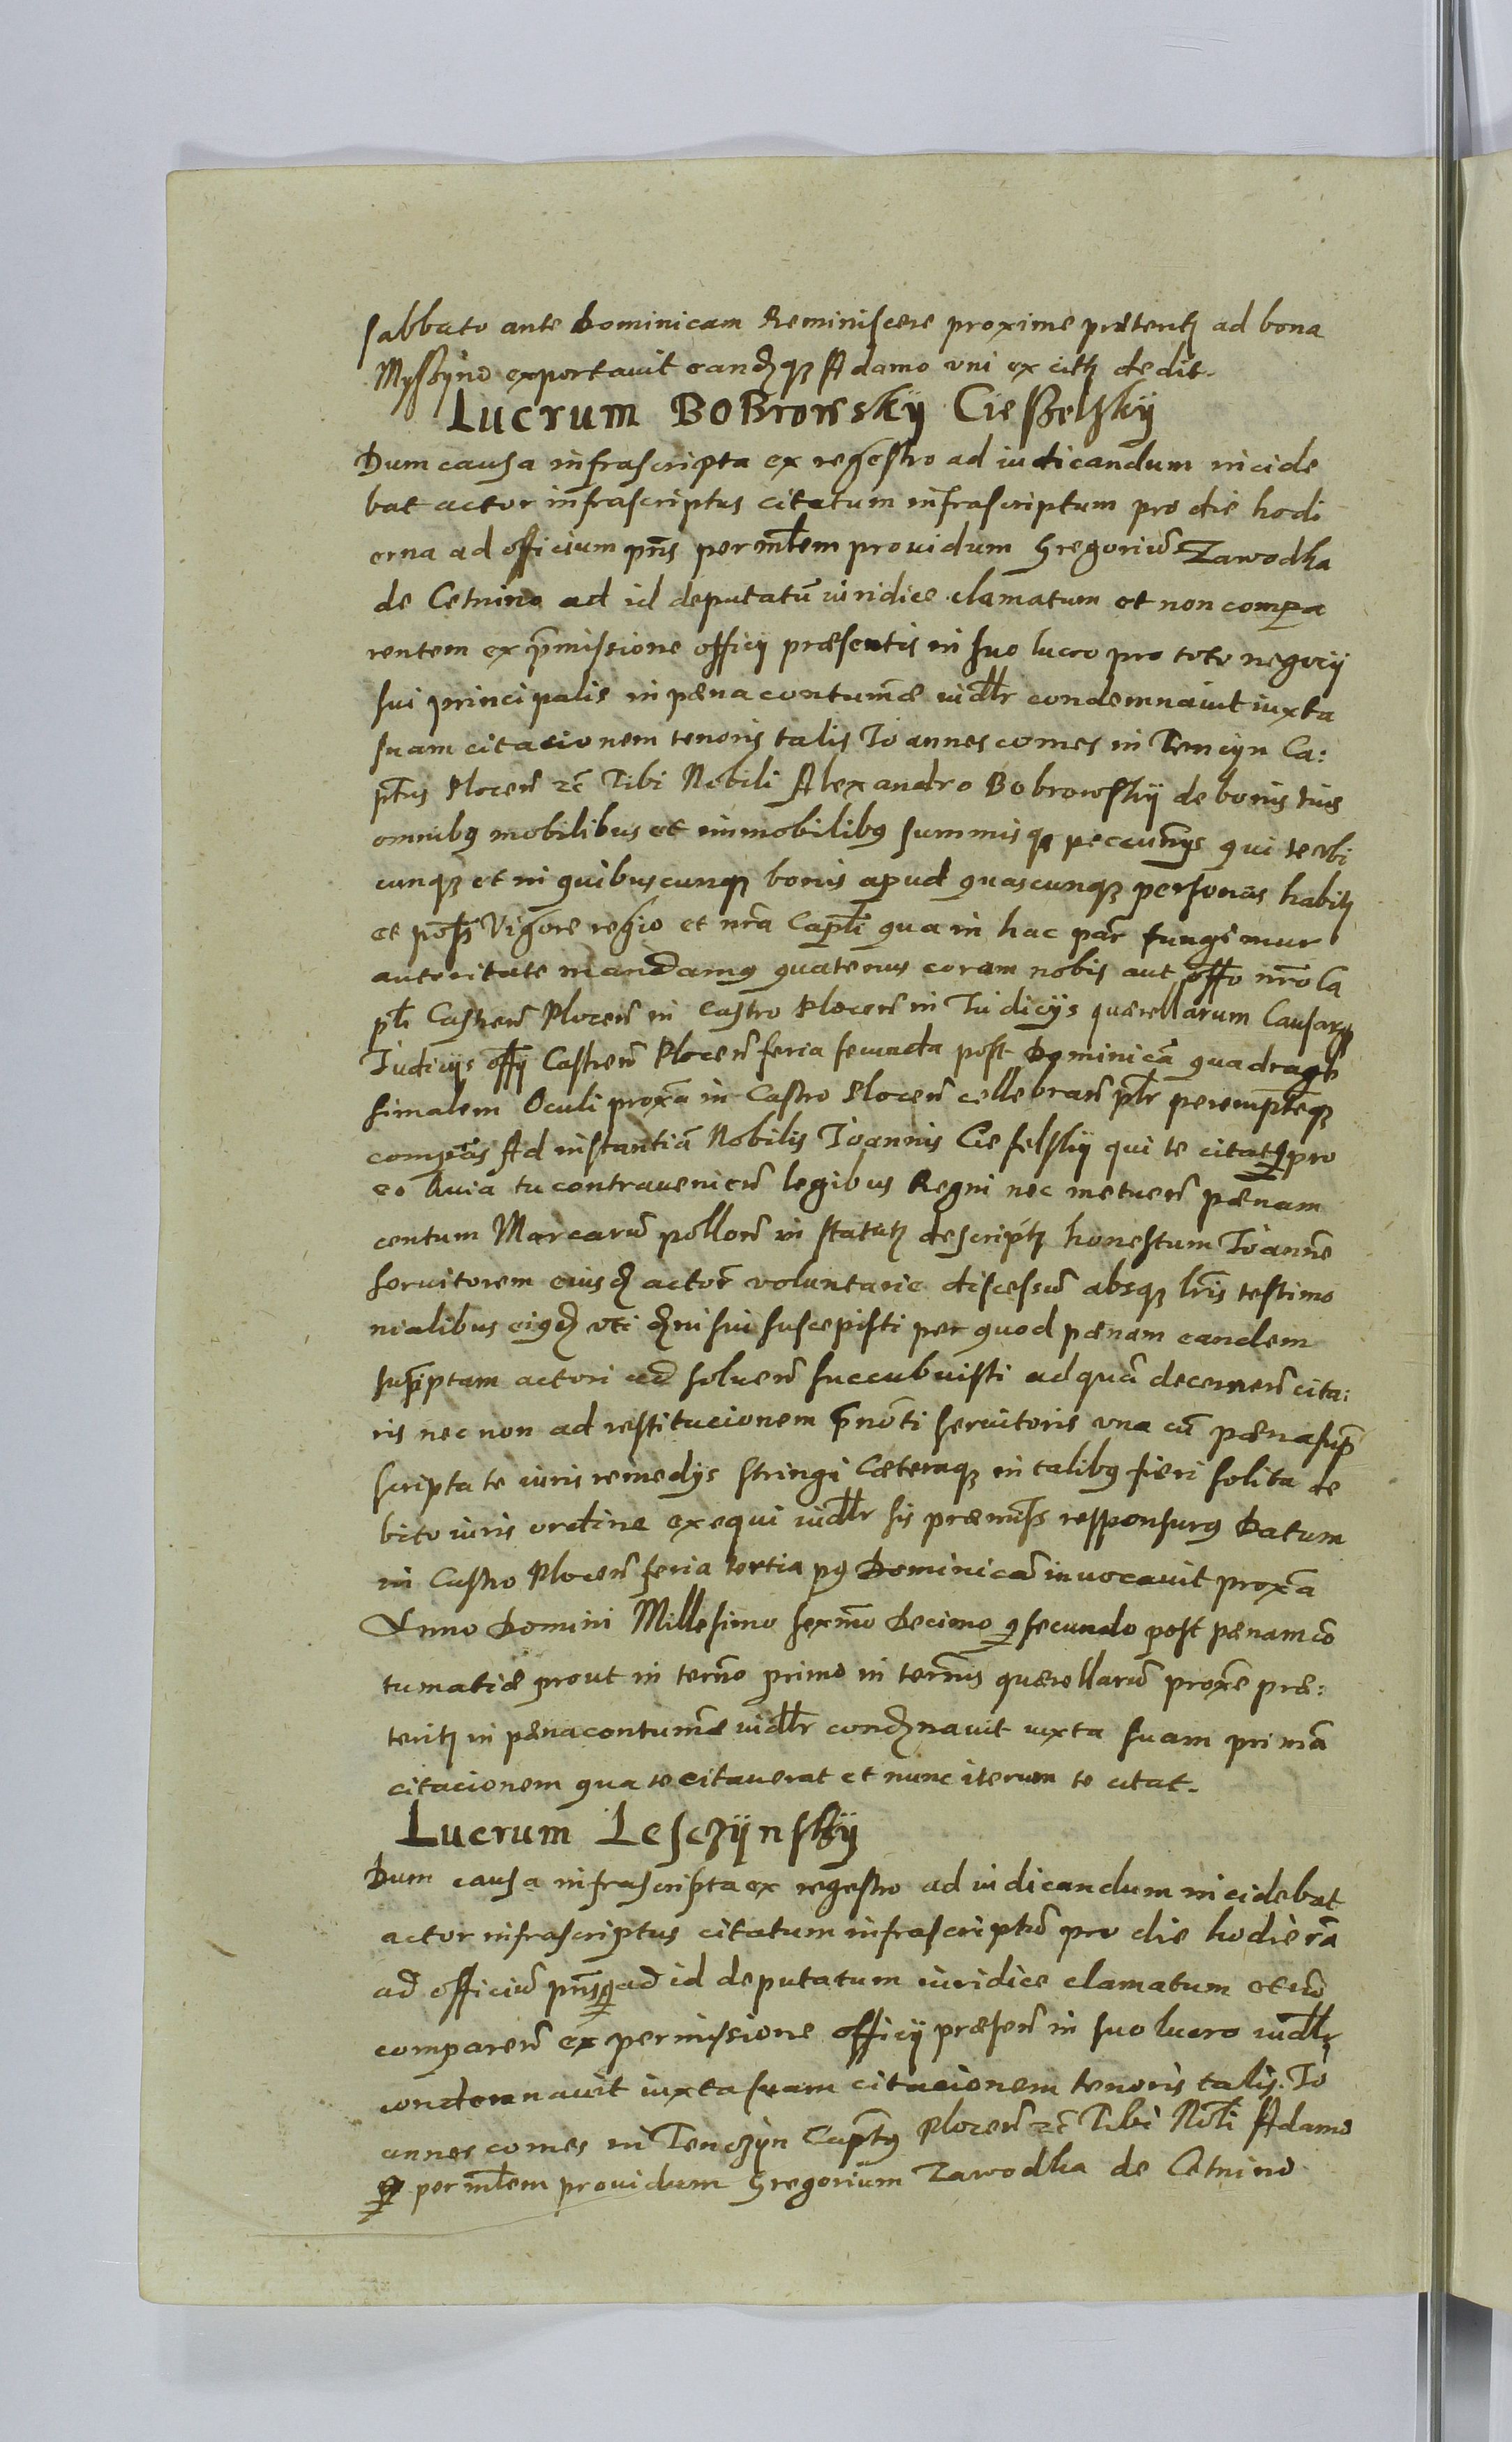 sabbato ante Dominicam Reminiscere proxime præterit̃ ad bona
Myszyno exportavit eandq̃ Adamo uni ex cit̃ dedit.
Lucrum Bobrowskÿ Cieszelskÿ
Dum causa infrascripta ex regestro ad iudicandum incide
bat actor infrascriptus citatum infrascriptum pro die hodi
erna ad officium pñs per mltem providum Gregoriũ Zawodka
de Cetnino ad id deputatũ iuridice clamatum et non compa
rentem ex p̃missione officÿ præsentis in suo lucro pro toto negocÿ
sui principalis in pæna contumã iudlr condemnavit iuxta
suam citacionem tenoris talis Ioannes comes in Tencÿn Ca:
ptus Plocen̄ zc̄ Tibi Nobili Alexandro Bobrowskÿ de bonis tuis
omnibꝰ mobilibus et immobilibꝰ summisq̃ peccuniÿs qui te ubi
cunq̃ et in quibuscunq̃ bonis apud quascunq̃ personas habit̃
et poss̃ Vigore regio et nr̃a Capl̃i qua in hac par̃ fungimur
autoritate mandamꝰ quatenus coram nobis aut offo nr̃o Ca
pl̃i Castren̄ Plocen̄ in Castro Plocen̄ in Iudicÿs quærellarum Causarꝝ
Iudicÿs offÿ Castren̄ Plocen̄ feria secunda post Dominicã quadrage
simalem Oculi proxã in Castro Plocen̄ cellebran̄ plr̃ peremptieq̃
compãs Ad instantiã Nobilis Ioannis Cieselskÿ qui te citat pro
eo Quia tu contravenien̄ legibus Regni nec metuen̄ pænam
centum Marcarũ pollon̄ in statut̃ descript̃ honestum Ioannẽ
servitorem eiusd̃ actor̃ voluntarie discessũ absq̃ lr̃is testimo
nialibus eiꝰd̃ uti dñi sui suscepisti per quod pænam eandem
supr̃iptam actori ad solven̄ succubuisti ad quã decernen̄ cita:
ris nec non ad restitucionem p̃noti servitoris una cũ pæna sup̃
scripta te iuris remedÿs stringi Cæteraq̃ in talibꝰ fieri solita de
bito iuris ordine exequi iudlr sis præmiss̃ responsurꝰ Datum
in Castro Plocen̄ feria tertia pꝰ Dominicã invocavit proxã
Anno Domini Millesimo sexmo Decimo secundo post pænam cõ
tumatiæ prout in termo primo in termis quærellarũ proxe præ:
terit̃ in pæna contumæ iudlr cond̃navit iuxta suam primã
citacionem qua te citaverat et nunc iterum te citat.
Lucrum Lesczÿnskÿ
Dum causa infrascripta ex regestro ad iudicandum incidebat
actor infrascriptus citatum infrascriptũ pro die hodierã
ad officiũ pñs ad id deputatum iuridice clamatum et nõ
comparen̄ ex permissione officÿ præsen̄ in suo lucro iudlr
condemnavit iuxta suam citacionem tenoris talis. Io
annes comes in Tenczÿn Captꝰ Plocen̄ zc̄ Tibi Nobl̃i Adamo
per mltem providum Gregorium Zawodka de Cetnino